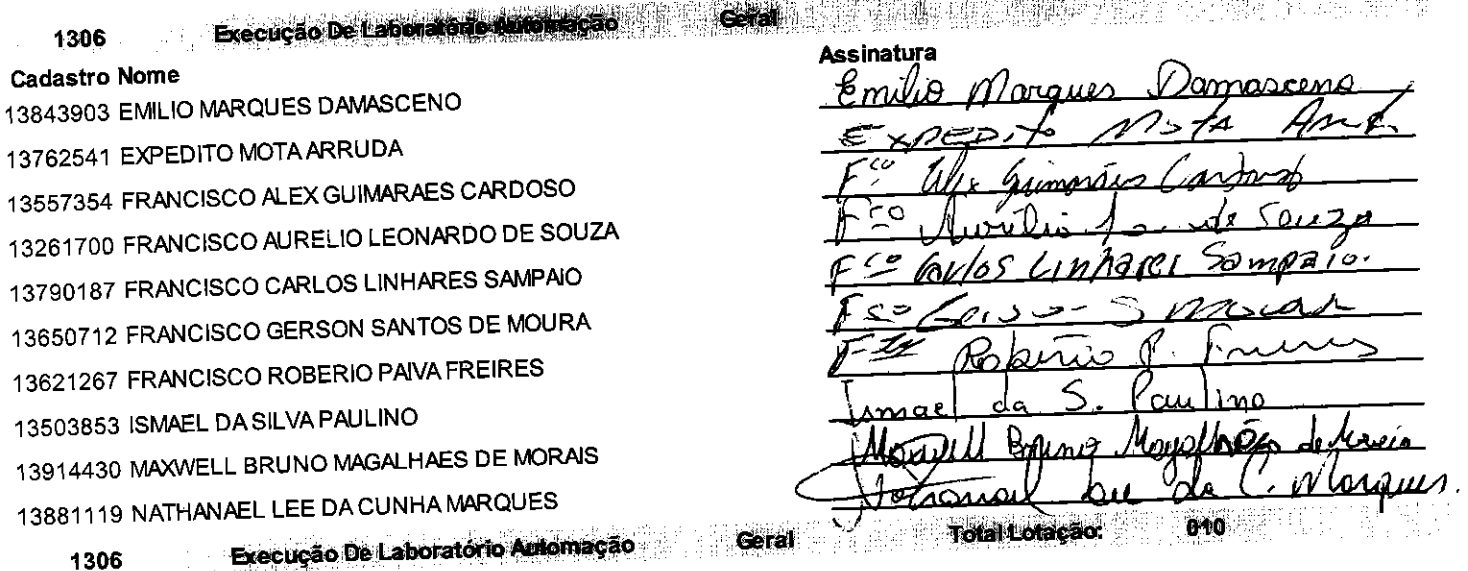 1306 Execução De Laboratório Automação Geral
Cadastro Nome Assinatura
13843903 EMILIO MARQUES DAMASCENO Emilio Marques Damasceno
13762541 EXPEDITO MOTA ARRUDA EXPEDITO MOTA
13557354 FRANCISCO ALEX GUIMARAES CARDOSO Fco Alex Guimarães Cardoso
13261700 FRANCISCO AURELIO LEONARDO DE SOUZA Fco Aurélio de Souza
13790187 FRANCISCO CARLOS LINHARES SAMPAIO Fco Carlos Linhares Sampaio.
13650712 FRANCISCO GERSON SANTOS DE MOURA Fco S
13621267 FRANCISCO ROBERIO PAIVA FREIRES Roberio P. Freires
13503853 ISMAEL DA SILVA PAULINO Ismael da S. Paulino
13914430 MAXWELL BRUNO MAGALHAES DE MORAIS Maxwell Bruno Magalhães de
13881119 NATHANAEL LEE DA CUNHA MARQUES Lee da C. Marques.
1306 Execução De Laboratório Automação Geral Total Lotação: 010